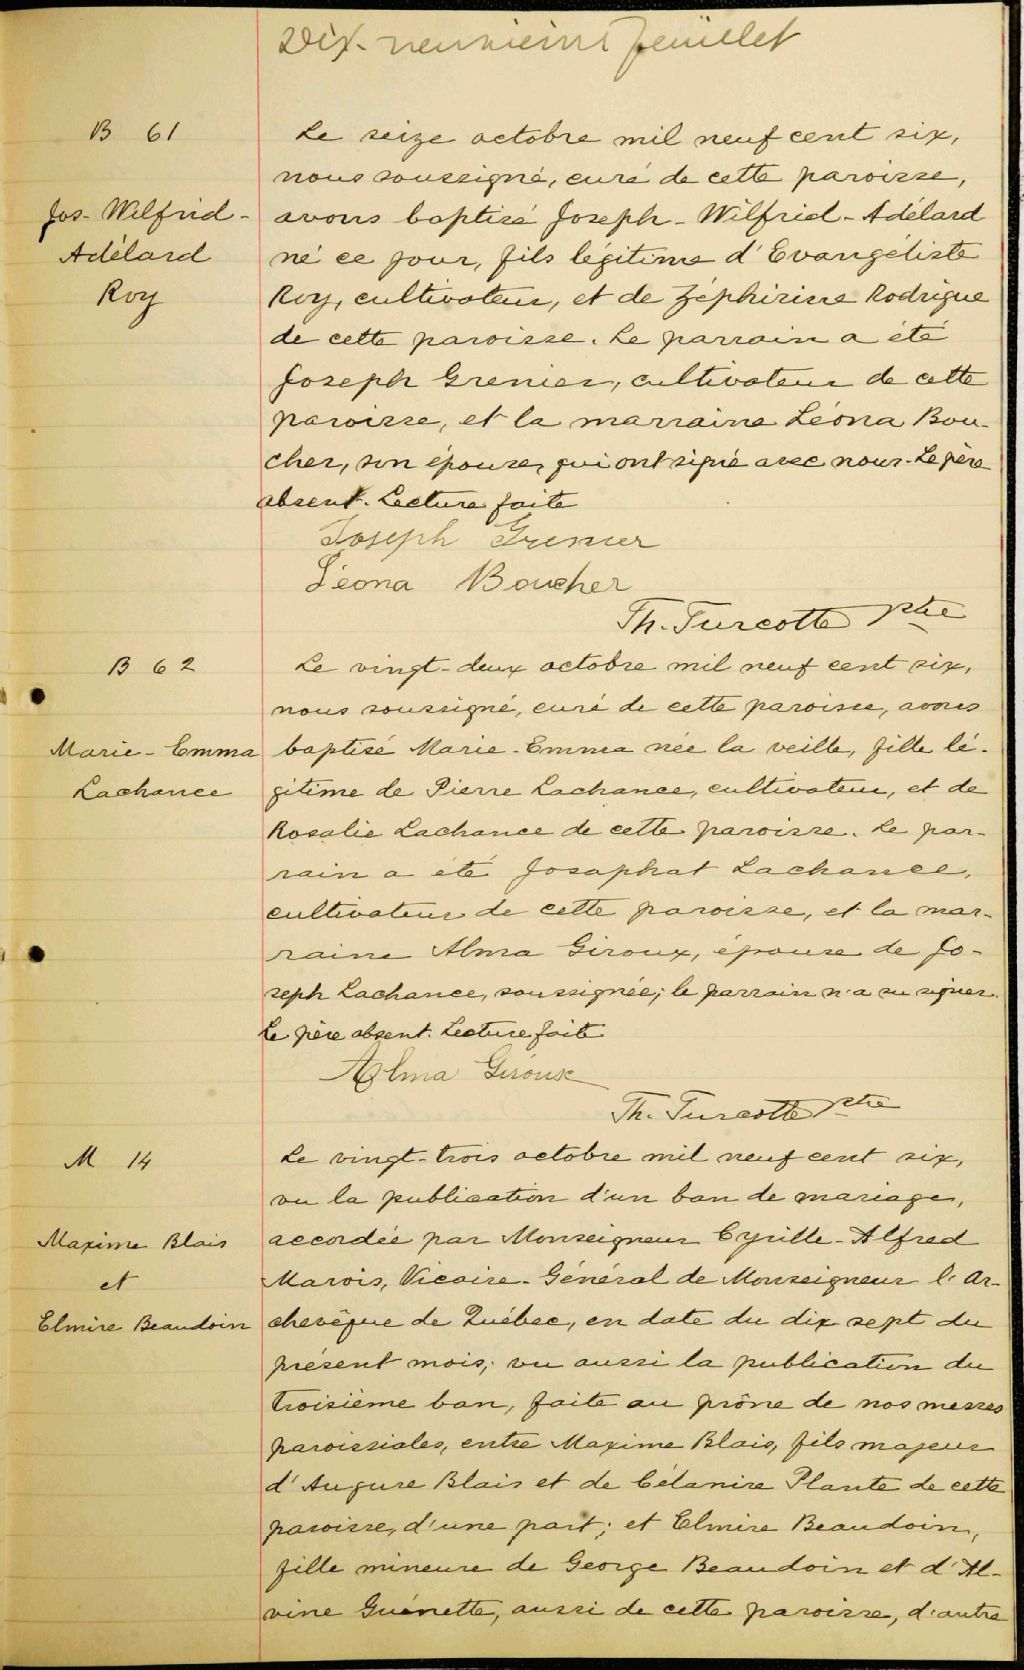 Dix-neuvième feuillet
B 61
Jos-Wilfrid-
Adélard
Roy
Le seize octobre mil neuf cent six,
nous soussigné, curé de cette paroisse,
avons baptisé Joseph-Wilfrid-Adélard
né ce jour, fils légitime d'Evangéliste
Roy, cultivateur, et de Zéphirine Rodrigue
de cette paroisse. Le parrain a été
Joseph Grenier, cultivateur de cette
paroisse, et la marraine Léona Bou-
cher, son épouse, qui ont signé avec nous. Le père
absent. Lecture faite
Joseph Grenier
Léona Boucher
Th. Turcotte ptre
B 62
Marie-Emma
Lachance
Le vingt-deux octobre mil neuf cent six,
nous soussigné, curé de cette paroisse, avons
baptisé Marie-Emma née la veille, fille lé-
gitime de Pierre Lachance, cultivateur, et de
Rosalie Lachance de cette paroisse. Le par-
rain a été Josaphat Lachance,
cultivateur de cette paroisse, et la mar-
raine Alma Giroux, épouse de Jo-
seph Lachance, soussignée; le parrain n'a su signer.
Le père absent. Lecture faite
Alma Giroux
Th. Turcotte ptre
M 14
Maxime Blais
et
Elmire Beaudoin
Le vingt-trois octobre mil neuf cent six,
vu la publication d'un ban de mariage,
accordée par Monseigneur Cyrille-Alfred
Marois, Vicaire-Général de Monseigneur l'Ar-
chevêque de Québec, en date du dix sept du
présent mois; vu aussi la publication du
troisième ban, faite au prône de nos messes
paroissiales, entre Maxime Blais, fils majeur
d'Augure Blais et de Célanire Plante de cette
paroisse, d'une part; et Elmire Beaudoin,
fille mineure de George Beaudoin et d'Al-
vine Guénette, aussi de cette paroisse, d'autre